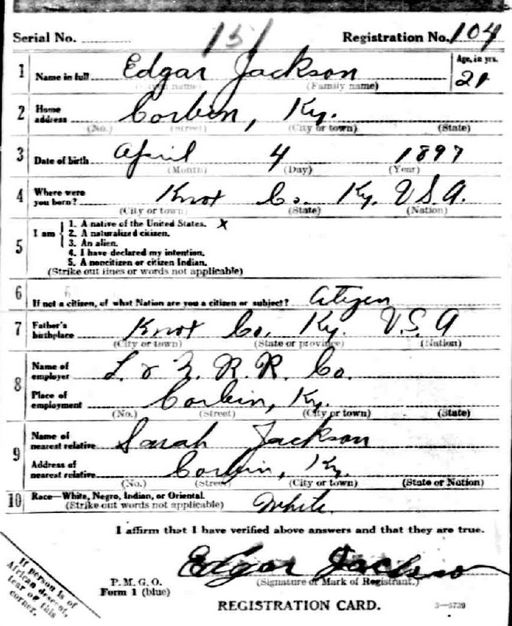 Serial No. 151 Registration No. 104
1 Name in full Edgar Jackson Age, in yrs. 21
(Family name)
2 Home address Corbin, Ky.
(No.) (Street) (City or town) (State)
3 Date of birth April 4 1897
(Month) (Day) (Year)
4 Where were you born? Knox Co. Ky. U.S.A.
(City or town) (State) (Nation)
5 I am
1. A native of the United States. X
2. A naturalized citizen.
3. An alien.
4. I have declared my intention.
5. A noncitizen or citizen Indian.
(Strike out lines or words not applicable)
6 If not a citizen, of what Nation are you a citizen or subject? Citizen
7 Father's birthplace Knox Co. Ky. U.S.A
(City or town) (State or province) (Nation)
8 Name of employer L. & N. R. R. Co.
Place of employment Corbin, Ky.
(No.) (Street) (City or town) (State)
9 Name of nearest relative Sarah Jackson
Address of nearest relative Corbin, Ky.
(No.) (Street) (City or town) (State or Nation)
10 Race—White, Negro, Indian, or Oriental. White
(Strike out words not applicable)
I affirm that I have verified above answers and that they are true.
Edgar Jackson
P. M. G. O. (Signature or Mark of Registrant.)
Form 1 (blue)
REGISTRATION CARD. 3—5739
If person is of
African descent,
tear off this
corner.